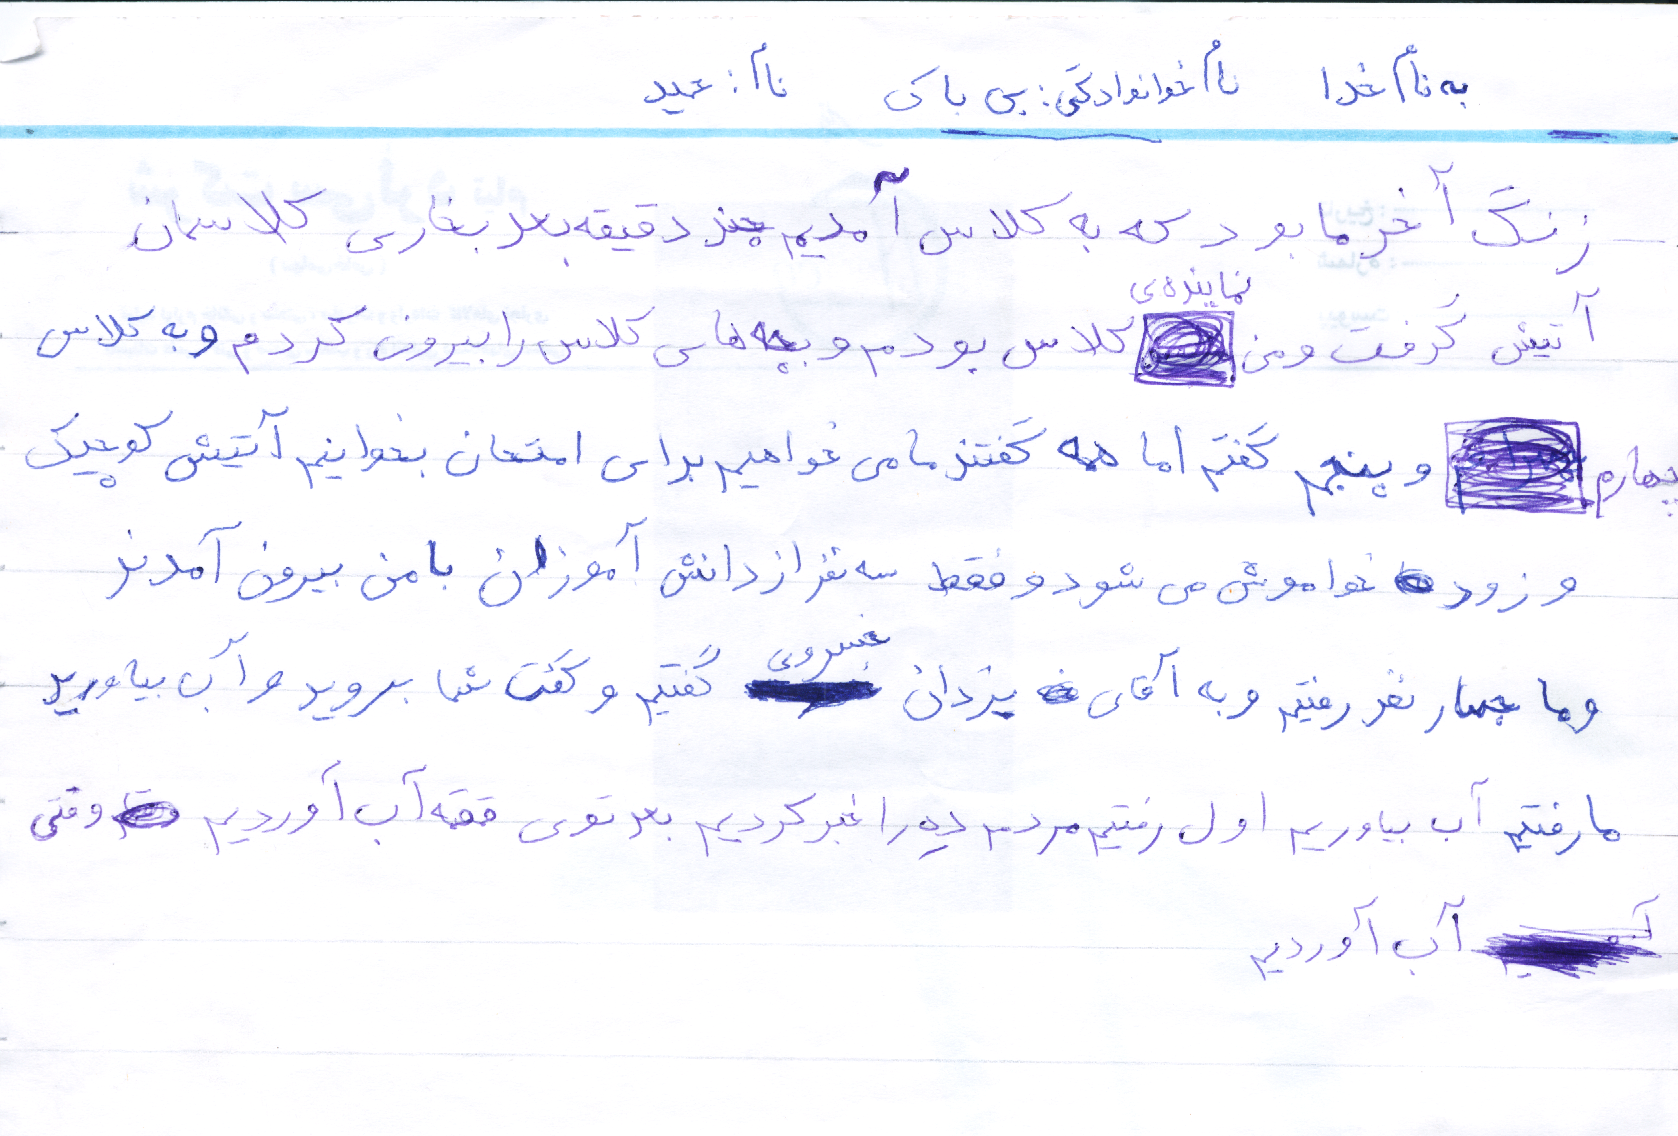 به نام خدا نام خوانوادگی: بی باک نام: حمید
زنگ آخر ما بود که به کلاس آمدیم چند دقیقه بعد بخاری کلاسمان
نماینده‌ی
آتیش گرفت و من کلاس بودم و بچه های کلاس را بیرون کردم و به کلاس
چهارم و پنجم گفتم اما همه گفتند ما می خواهیم برای امتحان بخوانیم آتیش کوچیک
و زود خواموش می شود و فقط سه نفر از دانش آموزان با من بیرون آمدند
خسروی
و ما چهار نفر رفتیم و به آقای یزدان گفتیم و گفت شما بروید و آب بیاورید
ما رفتیم آب بیاوریم اول رفتیم مردم دِه را خبر کردیم بعد توی قمقمه آب آوردیم وقتی
آب آوردیم